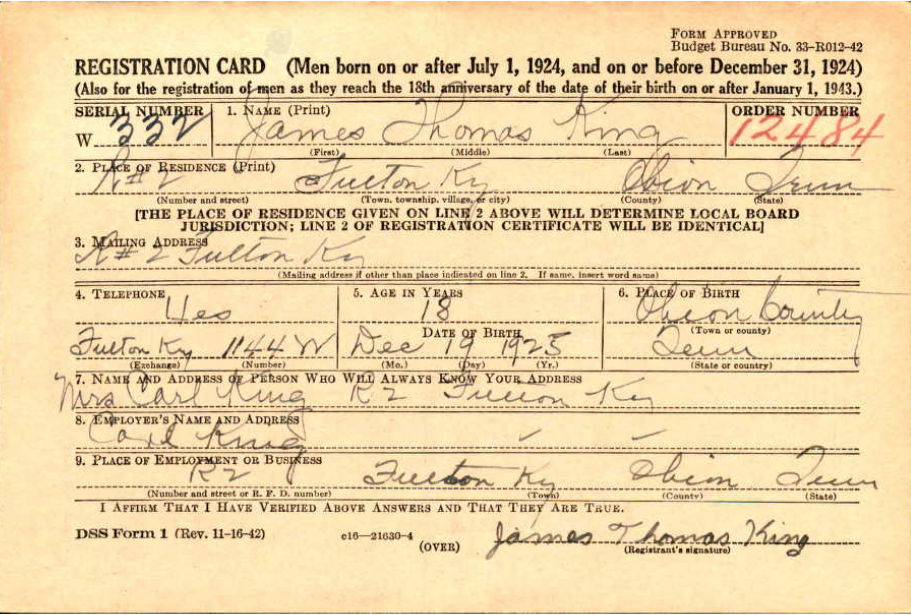 FORM APPROVED
Budget Bureau No. 33-R012-42
REGISTRATION CARD (Men born on or after July 1, 1924, and on or before December 31, 1924)
(Also for the registration of men as they reach the 18th anniversary of the date of their birth on or after January 1, 1943.)
SERIAL NUMBER 1. NAME (Print) ORDER NUMBER
W 332 James Thomas King 12484
(First) (Middle) (Last)
2. PLACE OF RESIDENCE (Print)
R#2 Fulton Ky Obion Tenn
(Number and street) (Town, township, village, or city) (County) (State)
[THE PLACE OF RESIDENCE GIVEN ON LINE 2 ABOVE WILL DETERMINE LOCAL BOARD
JURISDICTION; LINE 2 OF REGISTRATION CERTIFICATE WILL BE IDENTICAL]
3. MAILING ADDRESS
R#2 Fulton Ky
(Mailing address if other than place indicated on line 2. If same, insert word same)
4. TELEPHONE 5. AGE IN YEARS 6. PLACE OF BIRTH
Yes 18 Obion County
DATE OF BIRTH (Town or county)
Fulton Ky 1144 W Dec 19 1925 Tenn
(Exchange) (Number) (Mo.) (Day) (Yr.) (State or country)
7. NAME AND ADDRESS OF PERSON WHO WILL ALWAYS KNOW YOUR ADDRESS
Mrs Carl King R2 Fulton Ky
8. EMPLOYER'S NAME AND ADDRESS
Carl King
9. PLACE OF EMPLOYMENT OR BUSINESS
R2 Fulton Ky Obion Tenn
(Number and street or R. F. D. number) (Town) (County) (State)
I AFFIRM THAT I HAVE VERIFIED ABOVE ANSWERS AND THAT THEY ARE TRUE.
DSS Form 1 (Rev. 11-16-42) c16—21630-4 James Thomas King
(OVER) (Registrant's signature)